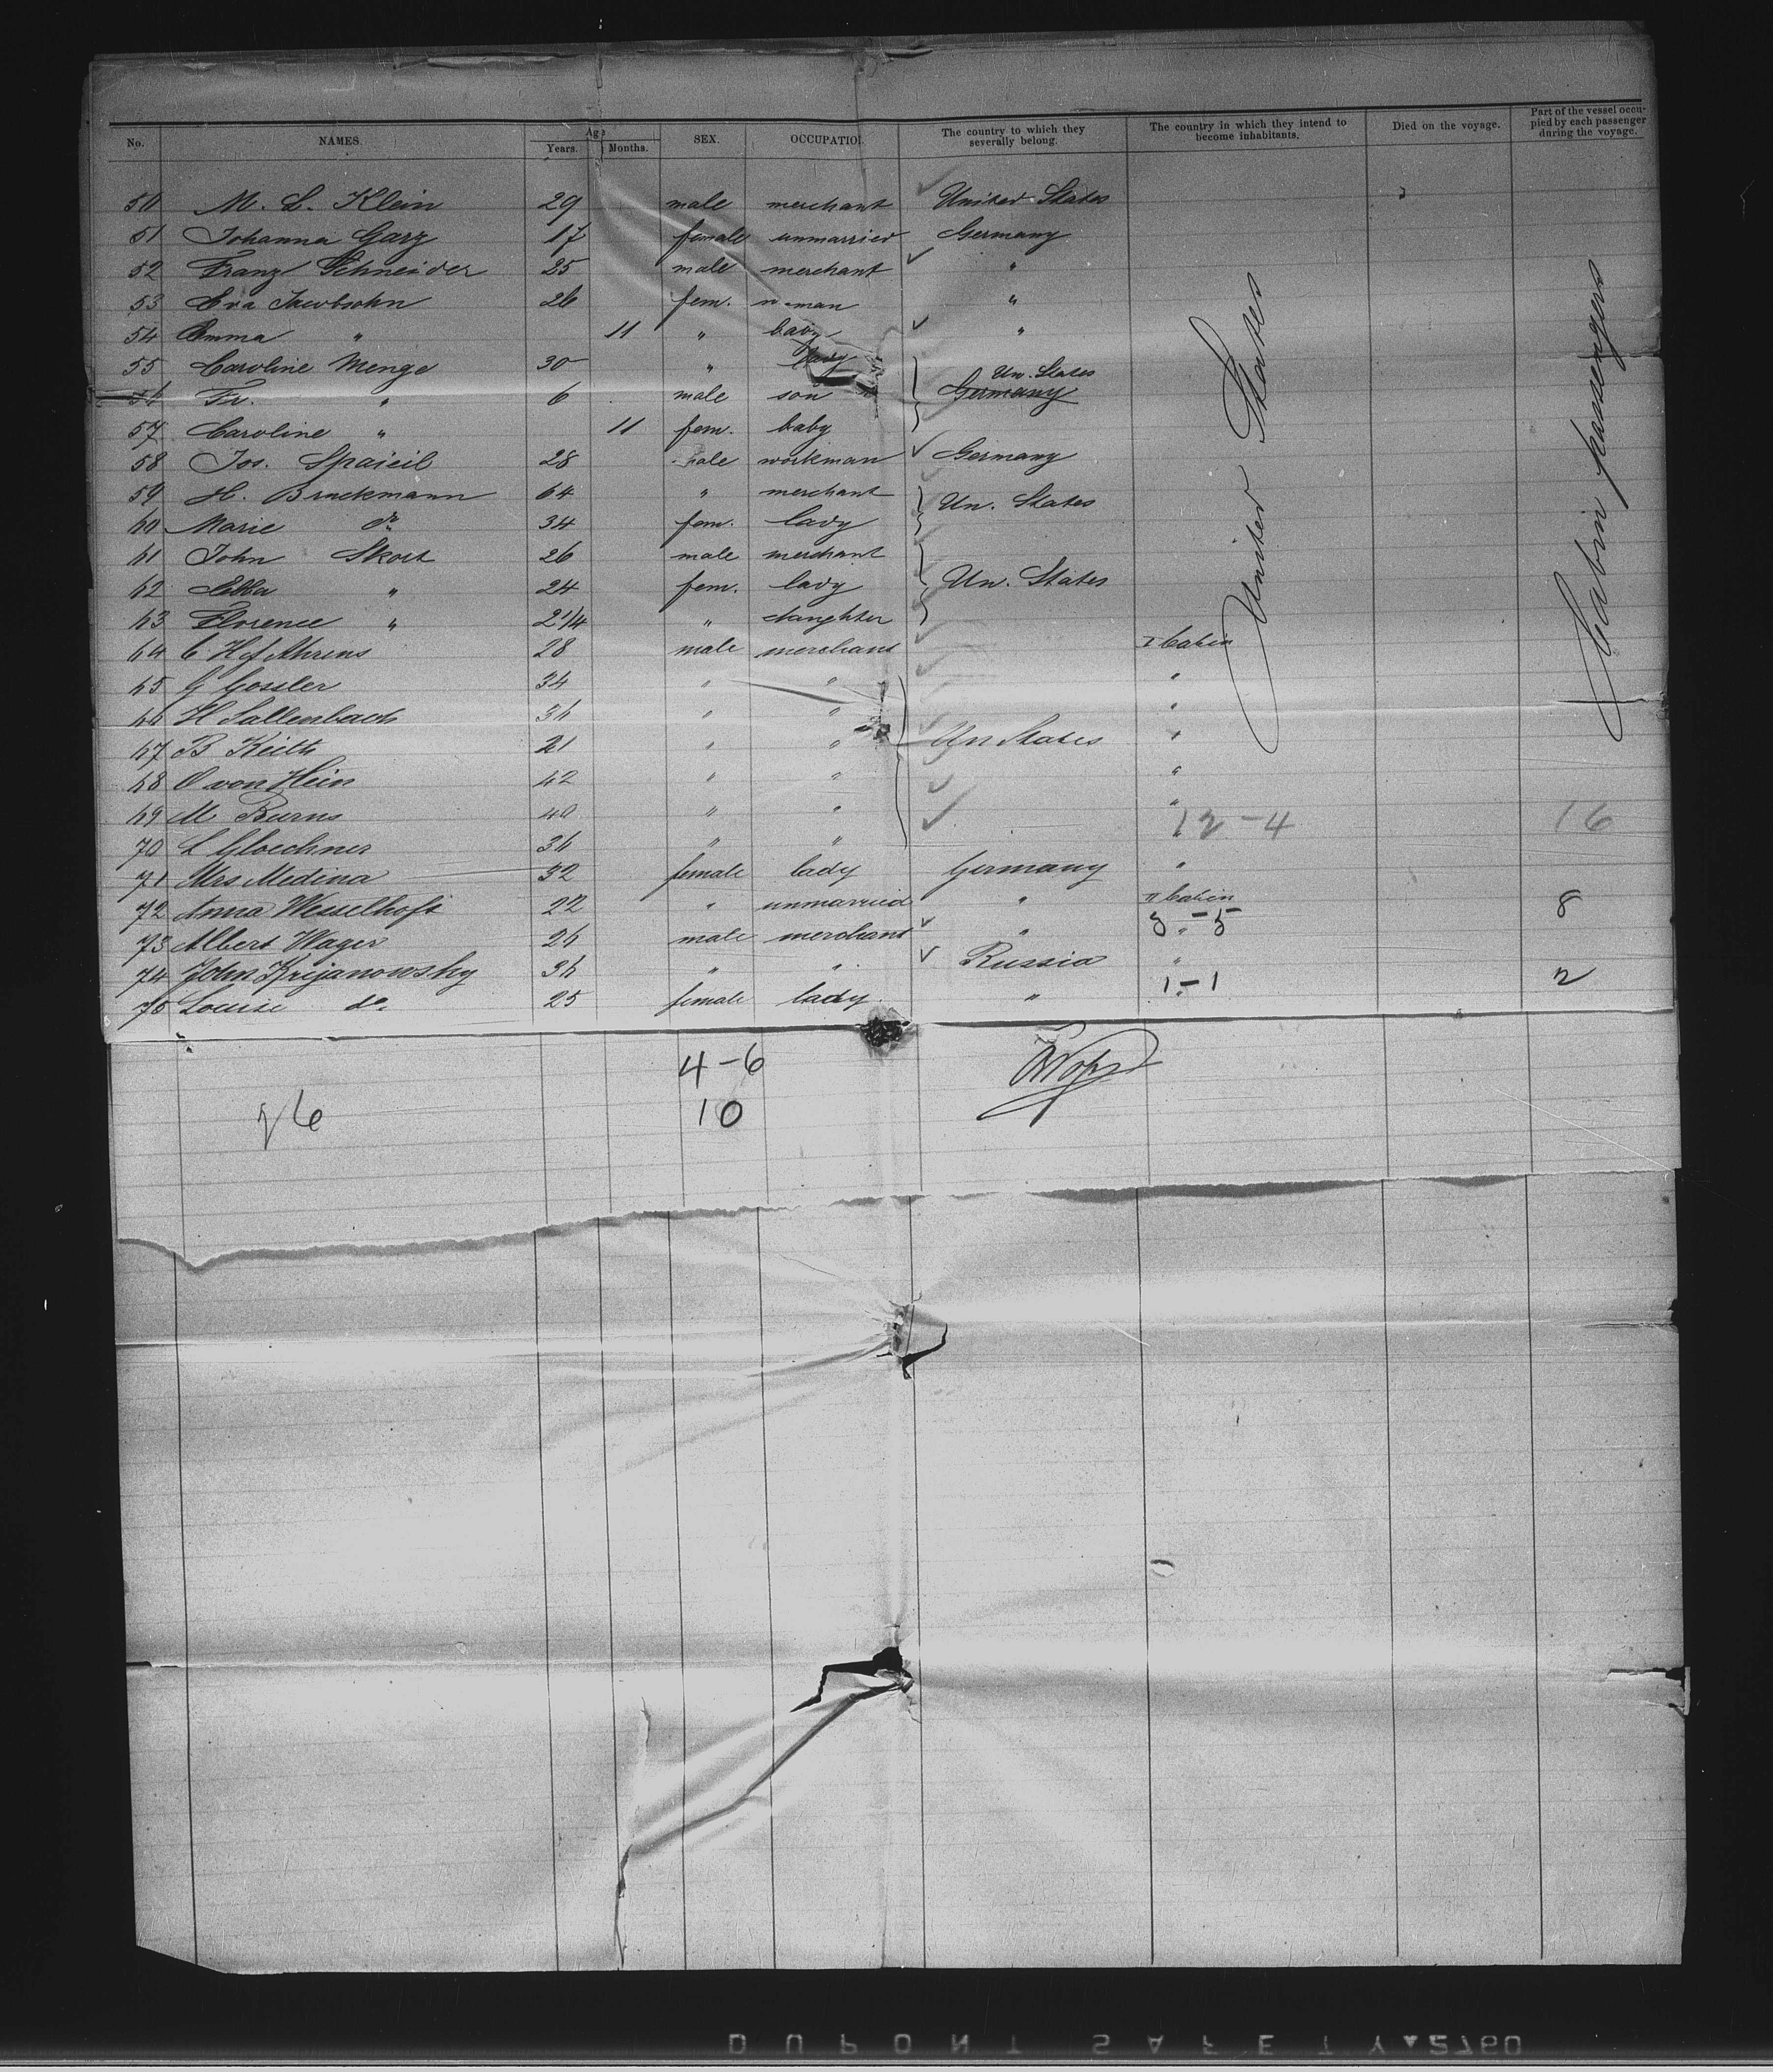 No. NAMES. Age Years. Months. SEX. OCCUPATION. The country to which they severally belong. The country in which they intend to become inhabitants. Died on the voyage. Part of the vessel occupied by each passenger during the voyage.
50 M. L. Klein 29 male merchant United States
51 Johanna Garz 17 female unmarried Germany
52 Franz Schneider 25 male merchant "
53 Eva Jacobsohn 26 fem. woman "
54 Emma " 11 " baby "
55 Caroline Menge 30 " lady Un. States
56 Fr. " 6 male son Germany
57 Caroline " 11 fem. baby
58 Jos. 28 male workman Germany
59 H. Bruckmann 64 " merchant Un. States
60 Marie do 34 fem. lady
61 John Skort 26 male merchant
62 " 24 fem. lady Un. States
63 Florence " 2 1/4 " daughter
64 C H f Ahrens 28 male merchant I Cabin
65 G Gossler 34 " " "
66 H Sallenbach 36 " " "
67 B Keith 21 " " Un States "
68 O von Hein 42 " " "
69 M Burns 40 " " "
70 L Gloechner 36 " " " 12-4 16
71 Mrs Medina 32 female lady Germany "
72 Anna Wesselhoft 22 " unmarried " II Cabin 8
73 Albert Wager 26 male merchant " " 3-5
74 John Krijanowsky 36 " " Russia " 2
75 Louise do. 25 female lady " " 1-1
United States
Cabin passengers
4-6
10
26
DUPONT SAFETY 2760